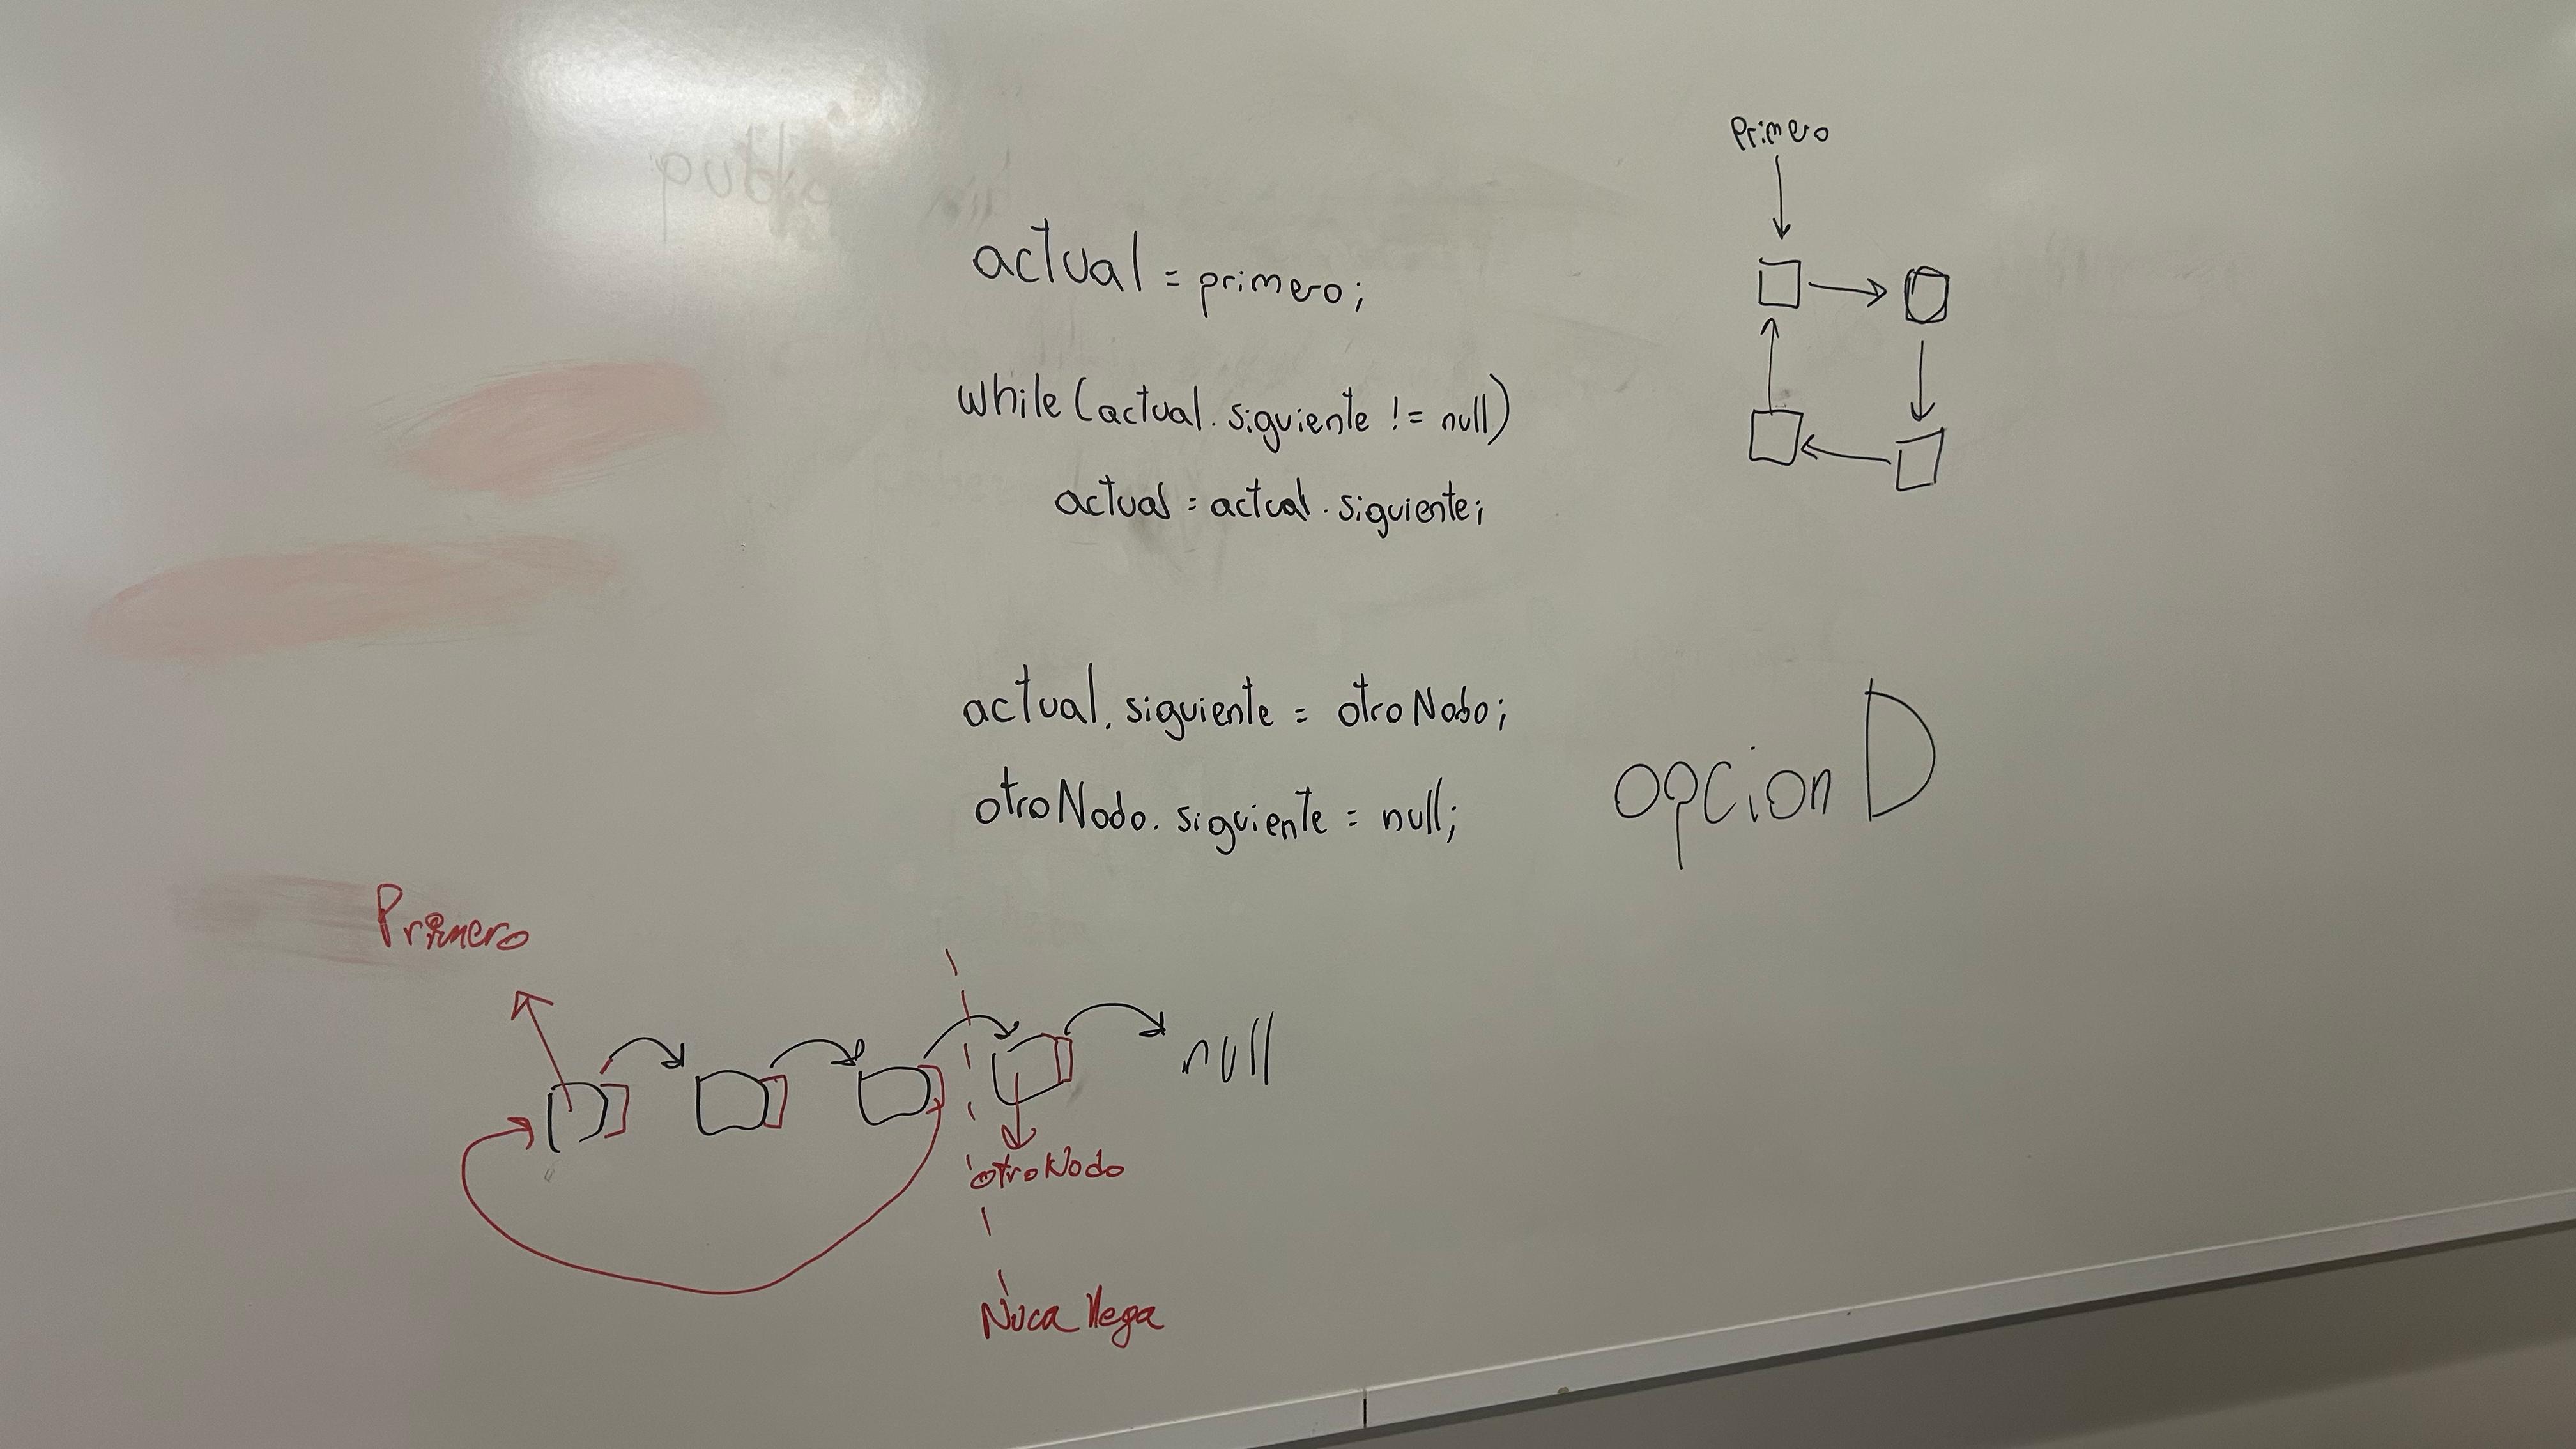 public
Primero
actual = primero;
while (actual. siguiente != null)
actual = actual. siguiente;
actual. siguiente = otro Nobo;
otroNodo. siguiente = null;
opcion D
Primero
null
otroNodo
Nuca llega